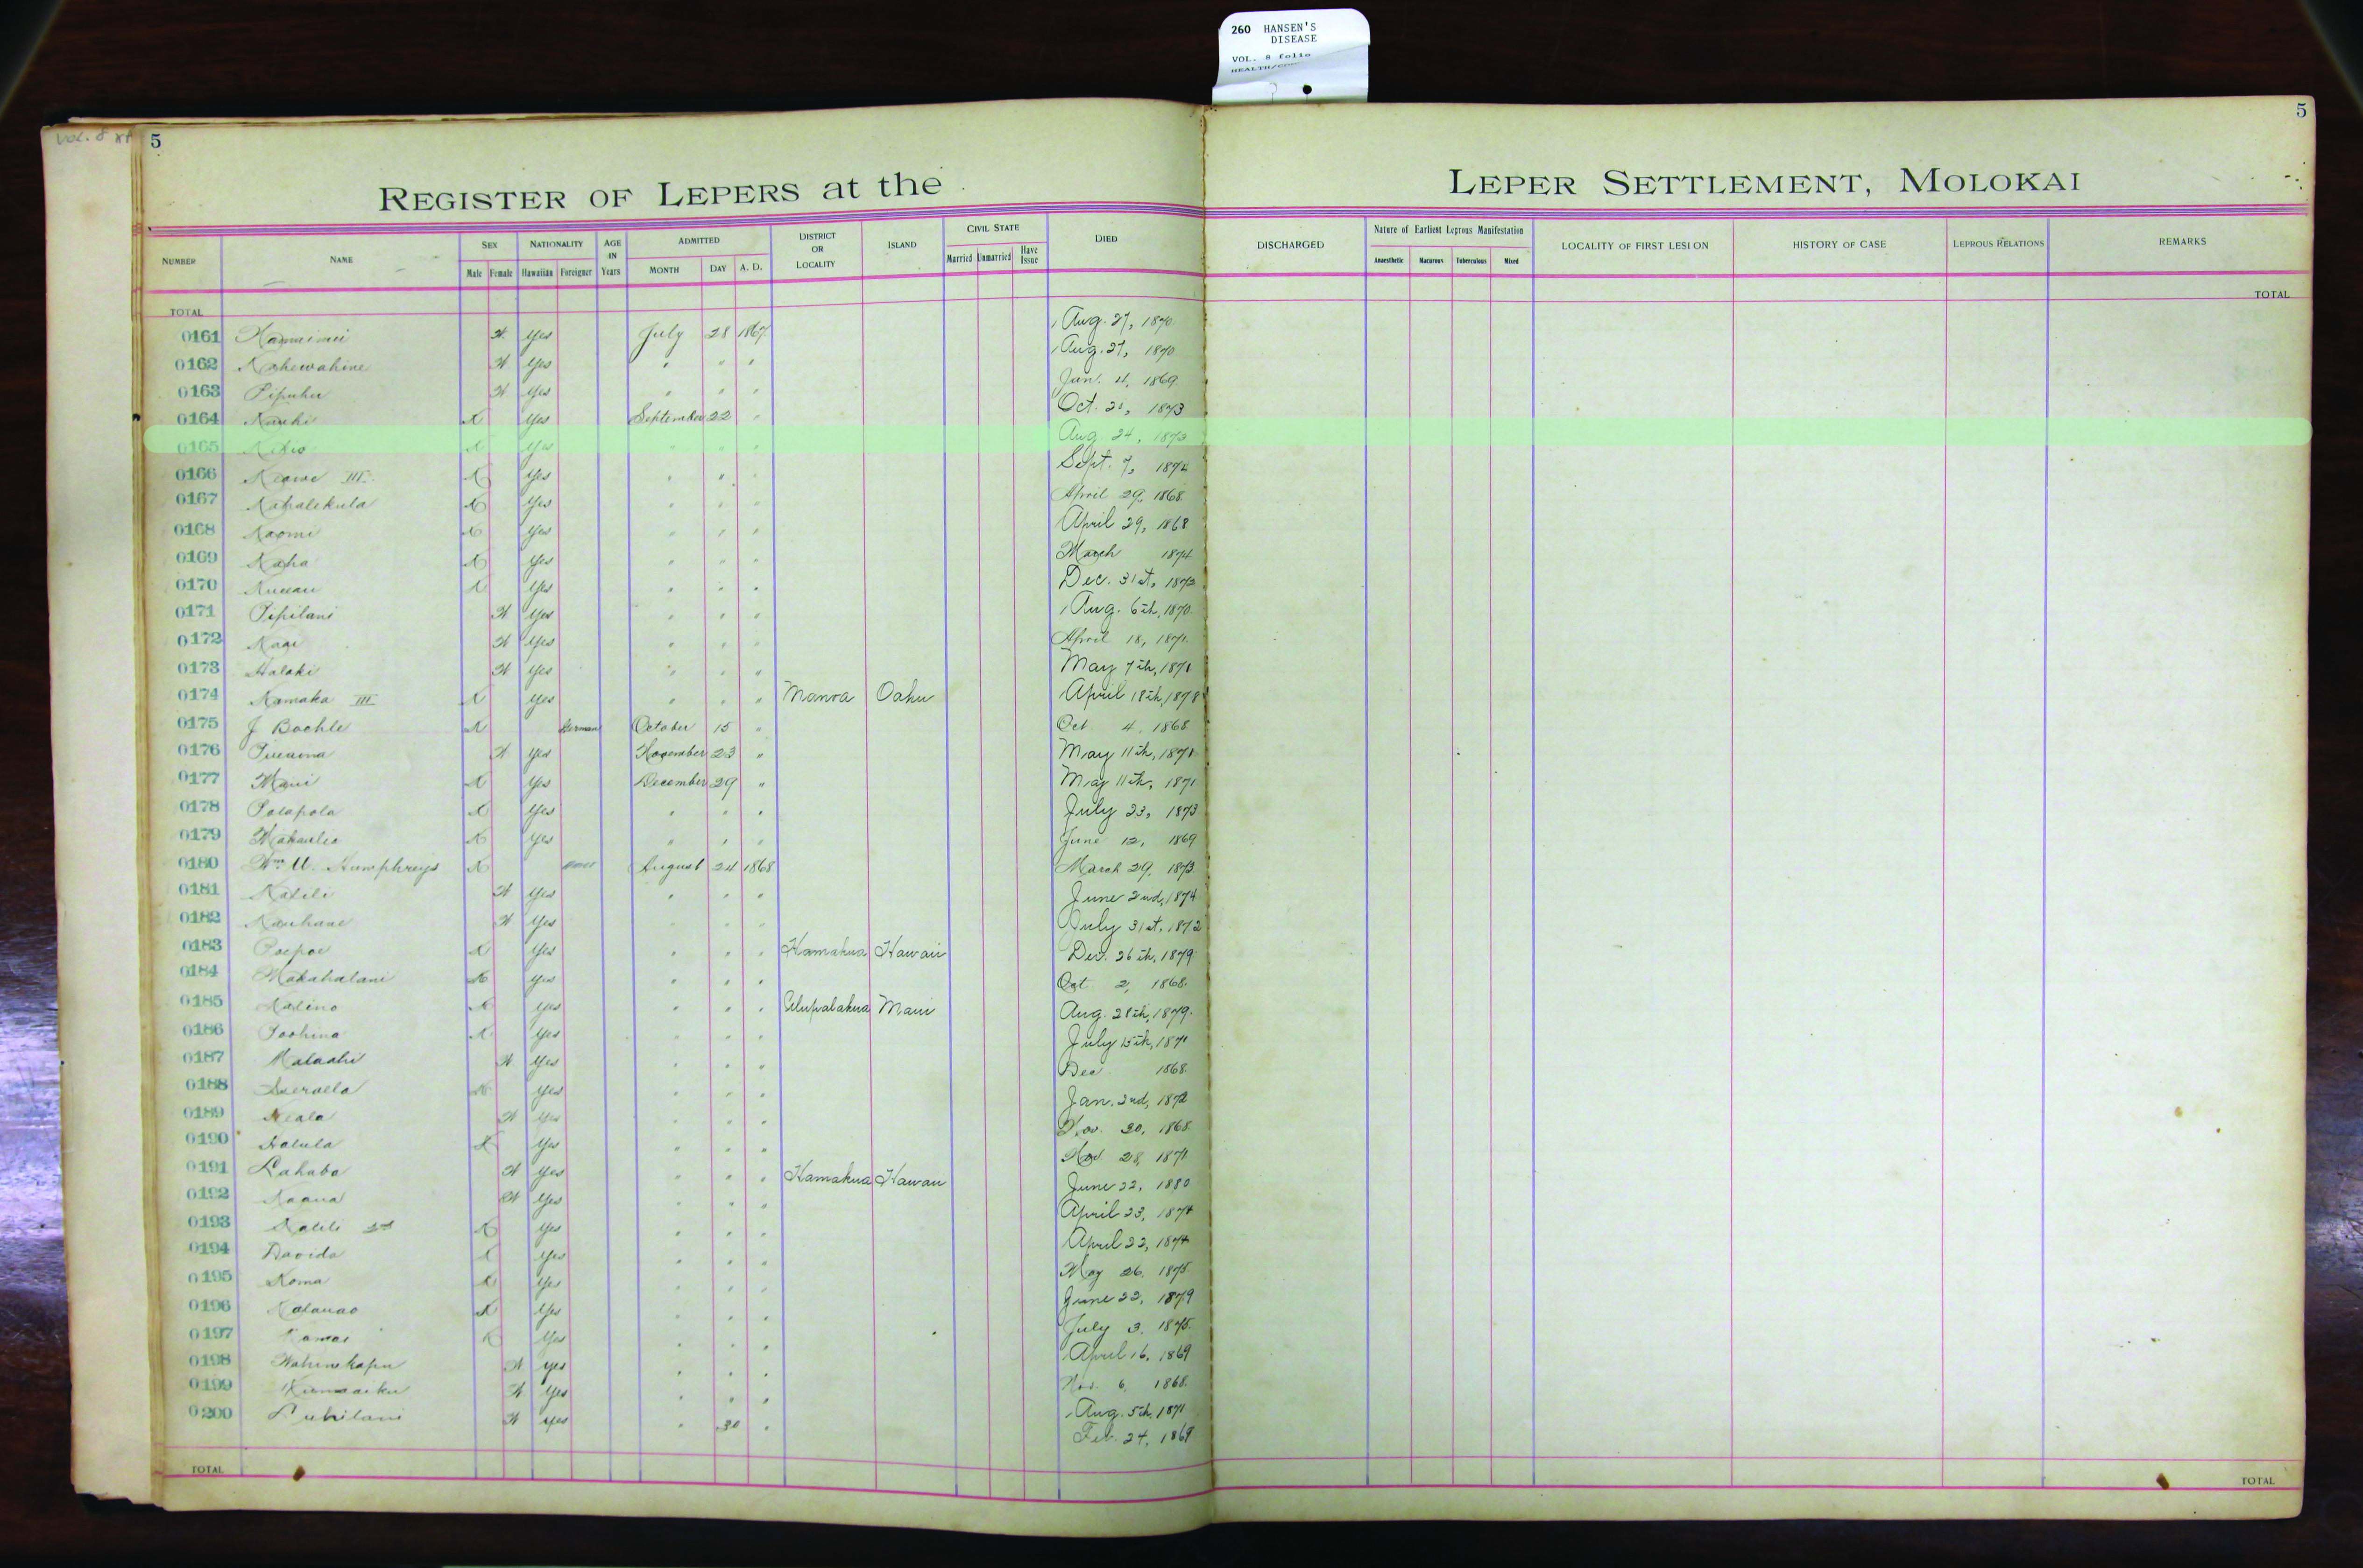 260 HANSEN'S
DISEASE
VOL. 8 folio
VOL. 8
5
5
REGISTER OF LEPERS at the LEPER SETTLEMENT, MOLOKAI
NUMBER NAME SEX Male Female NATIONALITY Hawaiian Foreigner AGE IN Years ADMITTED MONTH DAY A. D. DISTRICT OR LOCALITY ISLAND CIVIL STATE Married Unmarried Have Issue DIED DISCHARGED Nature of Earliest Leprous Manifestation Anaesthetic Macurous Tuberculous Mixed LOCALITY OF FIRST LESION HISTORY OF CASE LEPROUS RELATIONS REMARKS
TOTAL TOTAL
0161 Yes July 28 1867 Aug. 27, 1870
0162 Kahewahine Yes " " " Aug. 27, 1870
0163 Pipuhu Yes " " " Jan. 4, 1869
0164 Yes September 22 " Oct. 21, 1873
0165 Yes " " " Aug 24, 1873
0166 Keawe III Yes " " " Sept. 7, 1874
0167 Kahalikula Yes " " " April 29, 1868
0168 Naomi Yes " " " April 29, 1868
0169 Kaha Yes " " " March 1874
0170 Yes " " " Dec. 31st, 1873
0171 Pipilani Yes " " " Aug. 6th, 1870
0172 Yes " " " April 18, 1871
0173 Halaki Yes " " " May 7th, 1871
0174 Kamaka III Yes " " " Manoa Oahu April 18th, 1878
0175 J Bochle German October 15 " Oct 4, 1868
0176 Yes November 23 " May 11th, 1871
0177 Maui Yes December 29 " May 11th, 1871
0178 Polapola Yes " " " July 23, 1873
0179 Yes " " " June 12, 1869
0180 Wm. U. Humphreys August 24 1868 March 29, 1873
0181 Kalili Yes " " " June 2nd, 1874
0182 Kauhane Yes " " " July 31st, 1872
0183 Poepoe Yes " " " Hamakua Hawaii Dec. 26th, 1879
0184 Makahalani Yes " " " Oct 2, 1868
0185 Kalino Yes " " " Ulupalakua Maui Aug. 28th, 1879
0186 Poohina Yes " " " July 15th, 1871
0187 Malaahi Yes " " " Dec 1868
0188 Yes " " " Jan. 2nd, 1872
0189 Yes " " " Nov. 30, 1868
0190 Halula Yes " " " Nov. 28, 1871
0191 Lahaba Yes " " " Hamakua Hawaii June 22, 1880
0192 Kaaua Yes " " " April 23, 1874
0193 Kalili 2nd Yes " " " April 22, 1874
0194 Davida Yes " " " May 26, 1875
0195 Koma Yes " " " June 22, 1879
0196 Kalauao Yes " " " July 3, 1875
0197 Kamai Yes " " " April 16, 1869
0198 Wahinekapu Yes " " " Nov. 6, 1868
0199 Yes " " " Aug. 5th, 1871
0200 Luhilani Yes " 30 " Feb. 24, 1869
TOTAL TOTAL